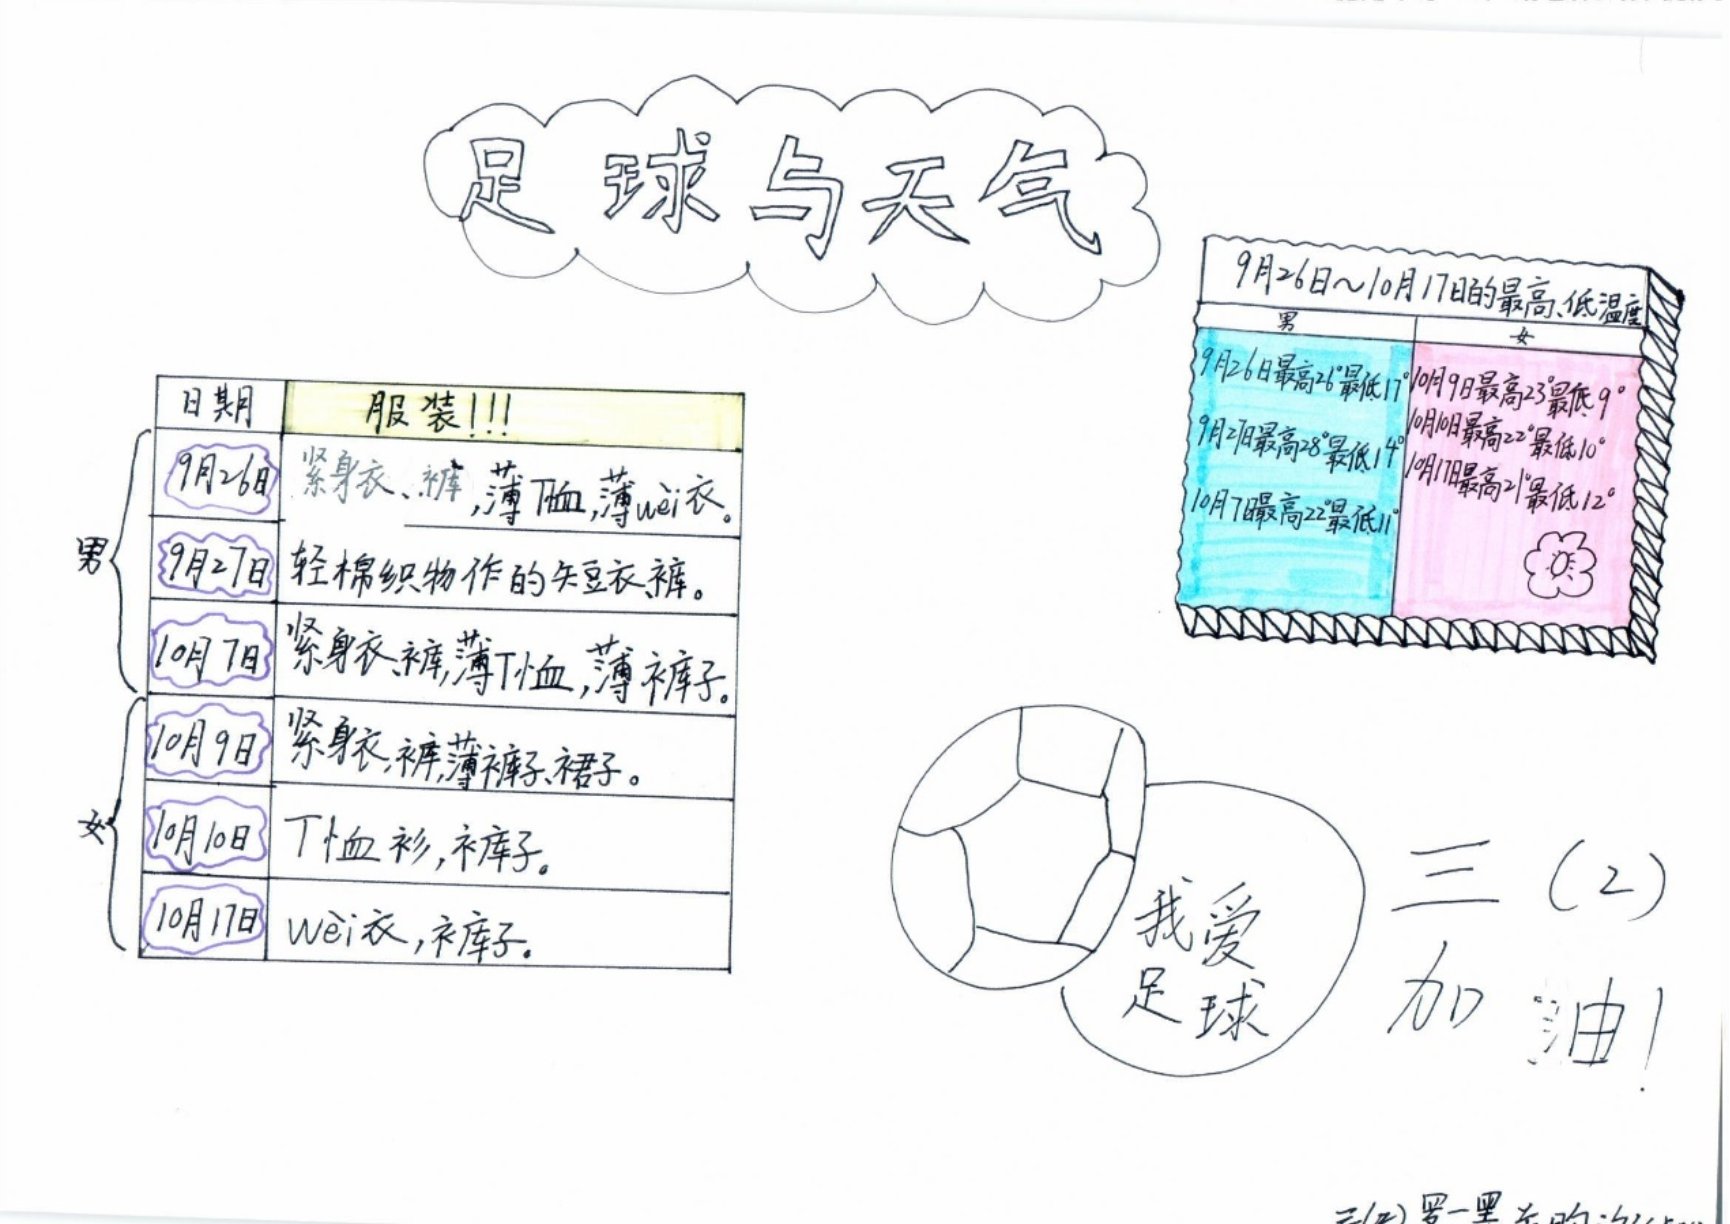 足球与天气
9月26日~10月17日的最高、低温度
男 女
9月26日最高26°最低17°
9月27日最高28°最低14°
10月7日最高22°最低11°
10月9日最高23°最低9°
10月10日最高22°最低10°
10月17日最高21°最低12°
日期 服装!!!
男
9月26日 紧身衣、裤,薄T恤,薄wèi衣。
9月27日 轻棉织物作的矢豆衣、裤。
10月7日 紧身衣、裤,薄T恤,薄裤子。
女
10月9日 紧身衣、裤,薄裤子、裙子。
10月10日 T恤衫,裤子。
10月17日 wèi衣,裤子。
我爱
足球
三(2)
加油!